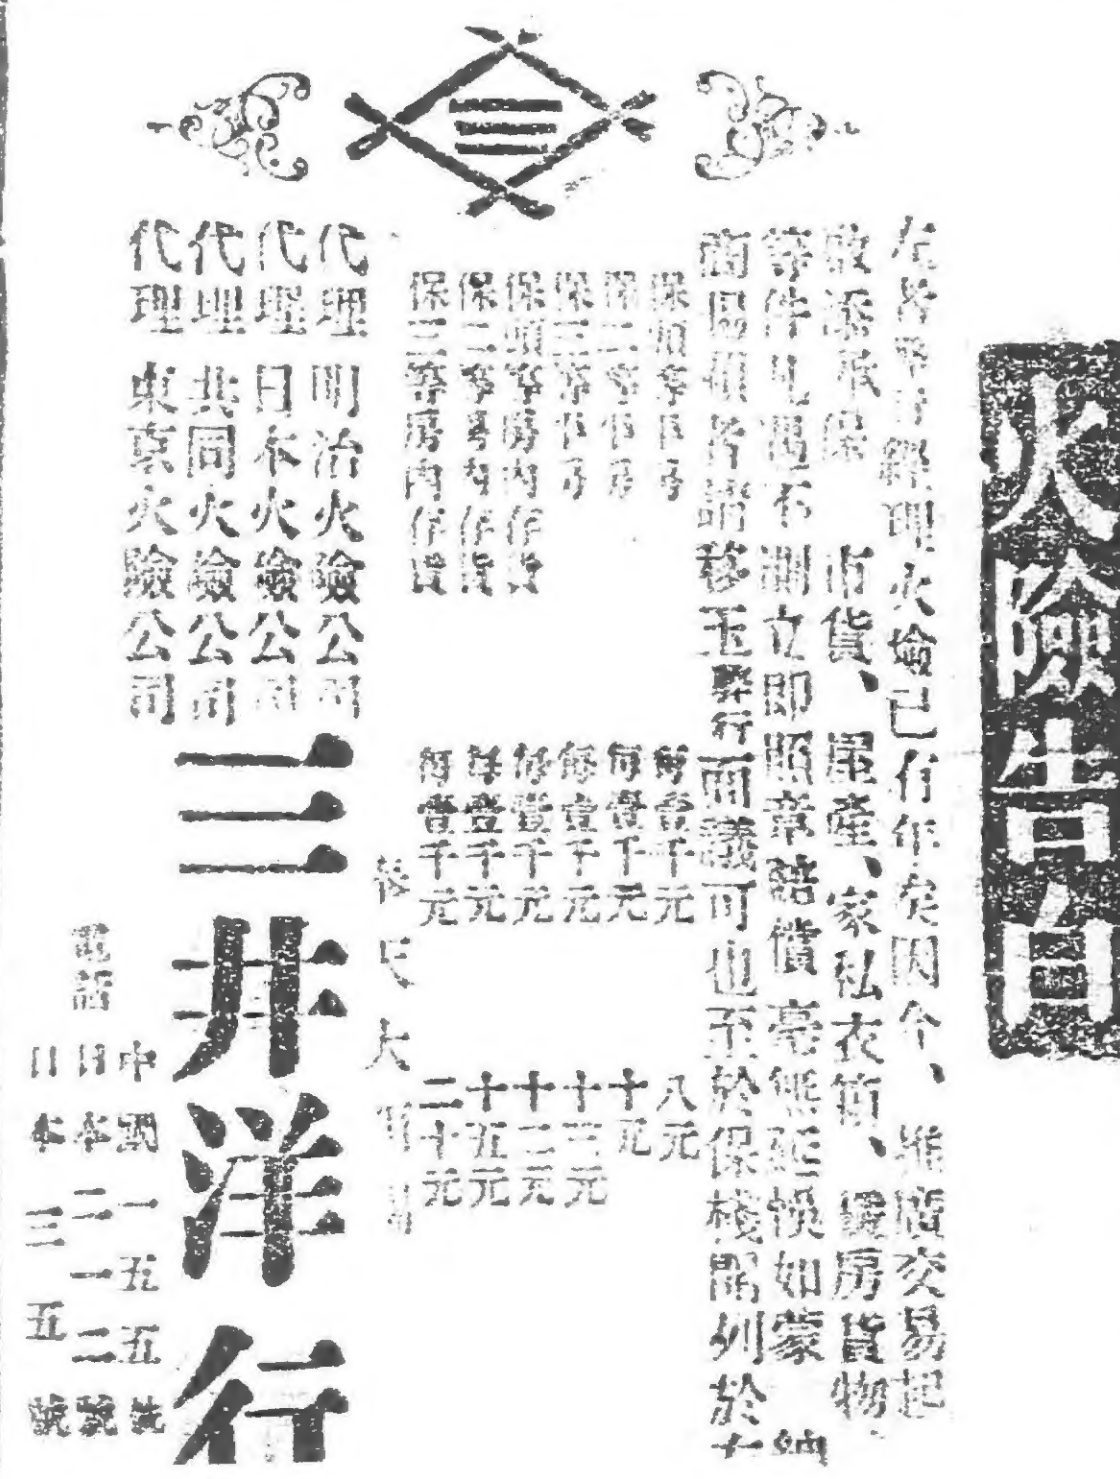 火險告白
經理火險已有年矣因今、推廣交易起
市貨、屋產、家私衣箱、棧房貨物、
等件凡遇不測立即照章賠償毫無延悞如蒙 紳
商賜顧者請移玉敝行面議可也至於保棧開列於左
保頭等 每壹千元 八元
保二等 每壹千元 十元
保三等 每壹千元 十三元
保頭等房內存貨 每壹千元 十二元
保二等房內存貨 每壹千元 十五元
保三等房內存貨 每壹千元 二十元
大
代理 明治火險公司
代理 日本火險公司
代理 共同火險公司
代理 東京火險公司
三井洋行
電話
中國一五五號
日本二一二號
日本三五號